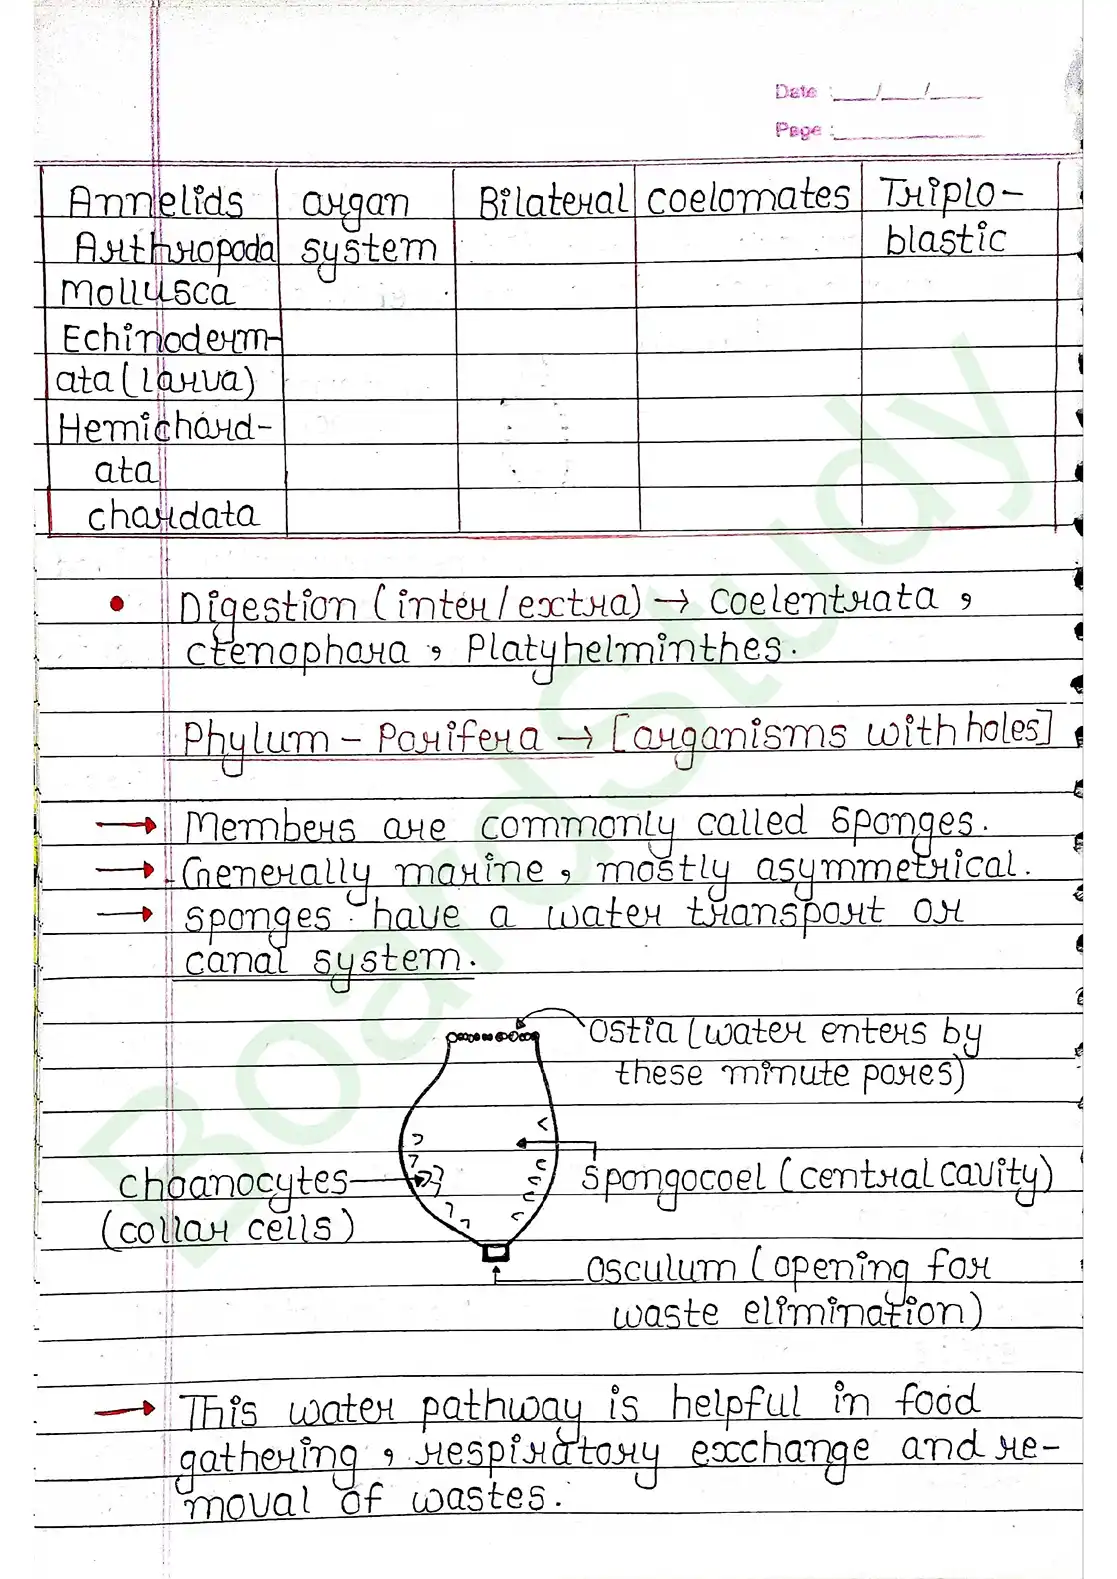 Date :___/___/____
Page :____________
Annelids organ Bilateral coelomates Triplo-
Arthropoda system blastic
Mollusca
Echinoderm-
ata (larva)
Hemichord-
ata
chordata
• Digestion (inter/extra) → Coelentrata,
ctenophora, Platyhelminthes.
Phylum - Porifera → [organisms with holes]
→ Members are commonly called Sponges.
→ Generally marine, mostly asymmetrical.
→ Sponges have a water transport or
canal system.
Ostia (water enters by
these minute pores)
choanocytes
(collar cells)
Spongocoel (central cavity)
Osculum (opening for
waste elimination)
→ This water pathway is helpful in food
gathering, respiratory exchange and re-
moval of wastes.
BoardStudy